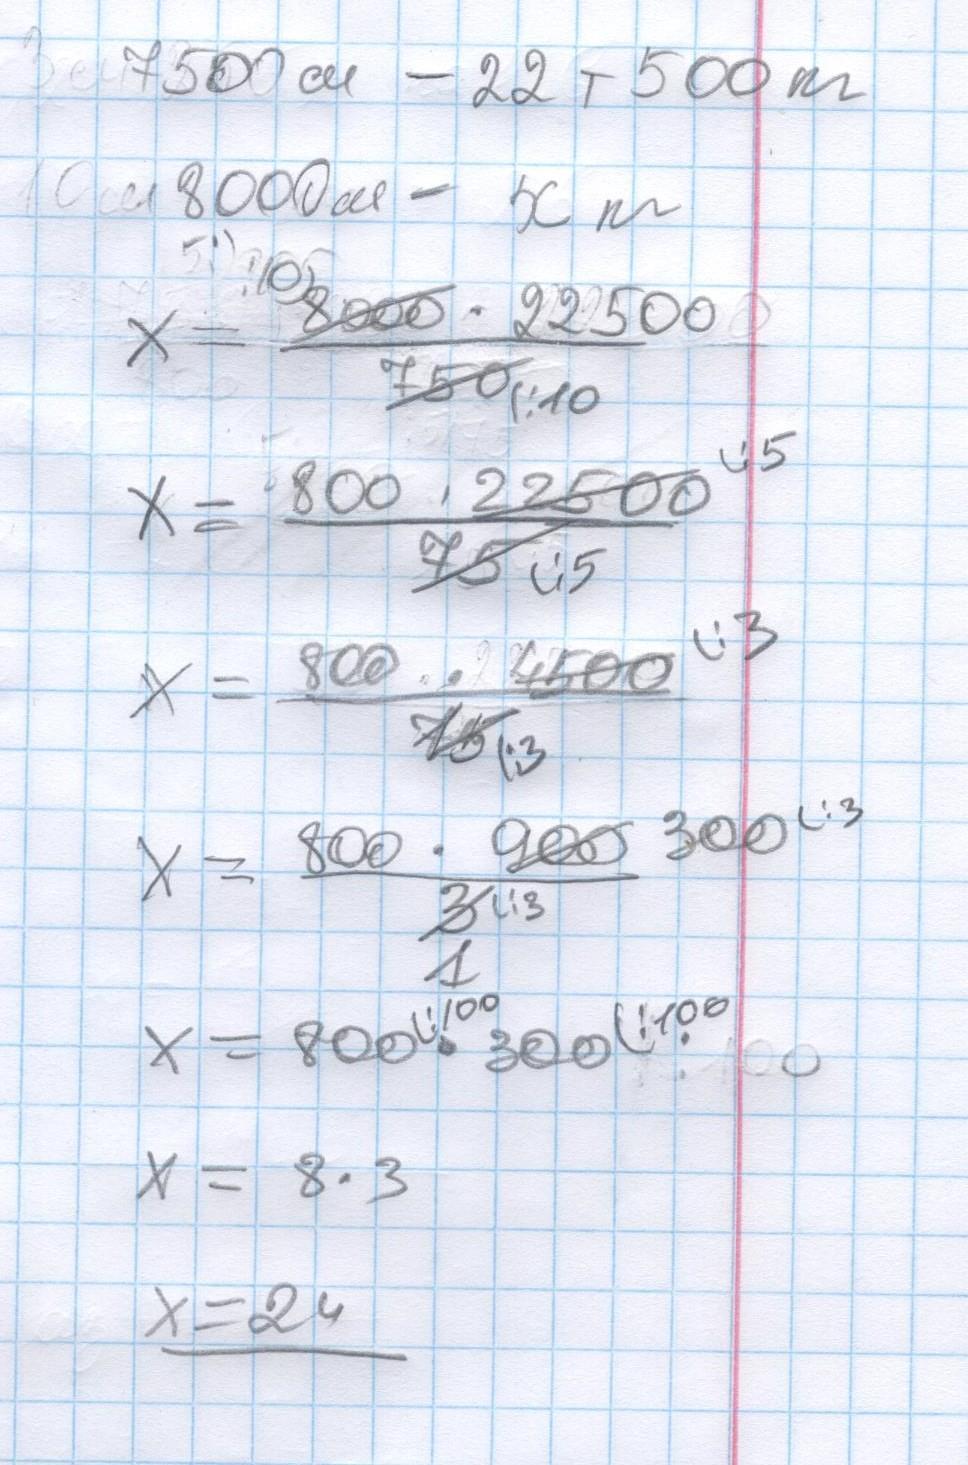 7500 см - 22 т 500 кг
8000 см - x кг
x = 8000 · 22500 / 750 (:10 (:10
x = 800 · 22500 / 75 (:5 (:5
x = 800 · 4500 / 15 (:3 (:3
x = 800 · 900 300 (:3 / 3 (:3 1
x = 800 (:100 · 300 (:100
x = 8 · 3
x = 24